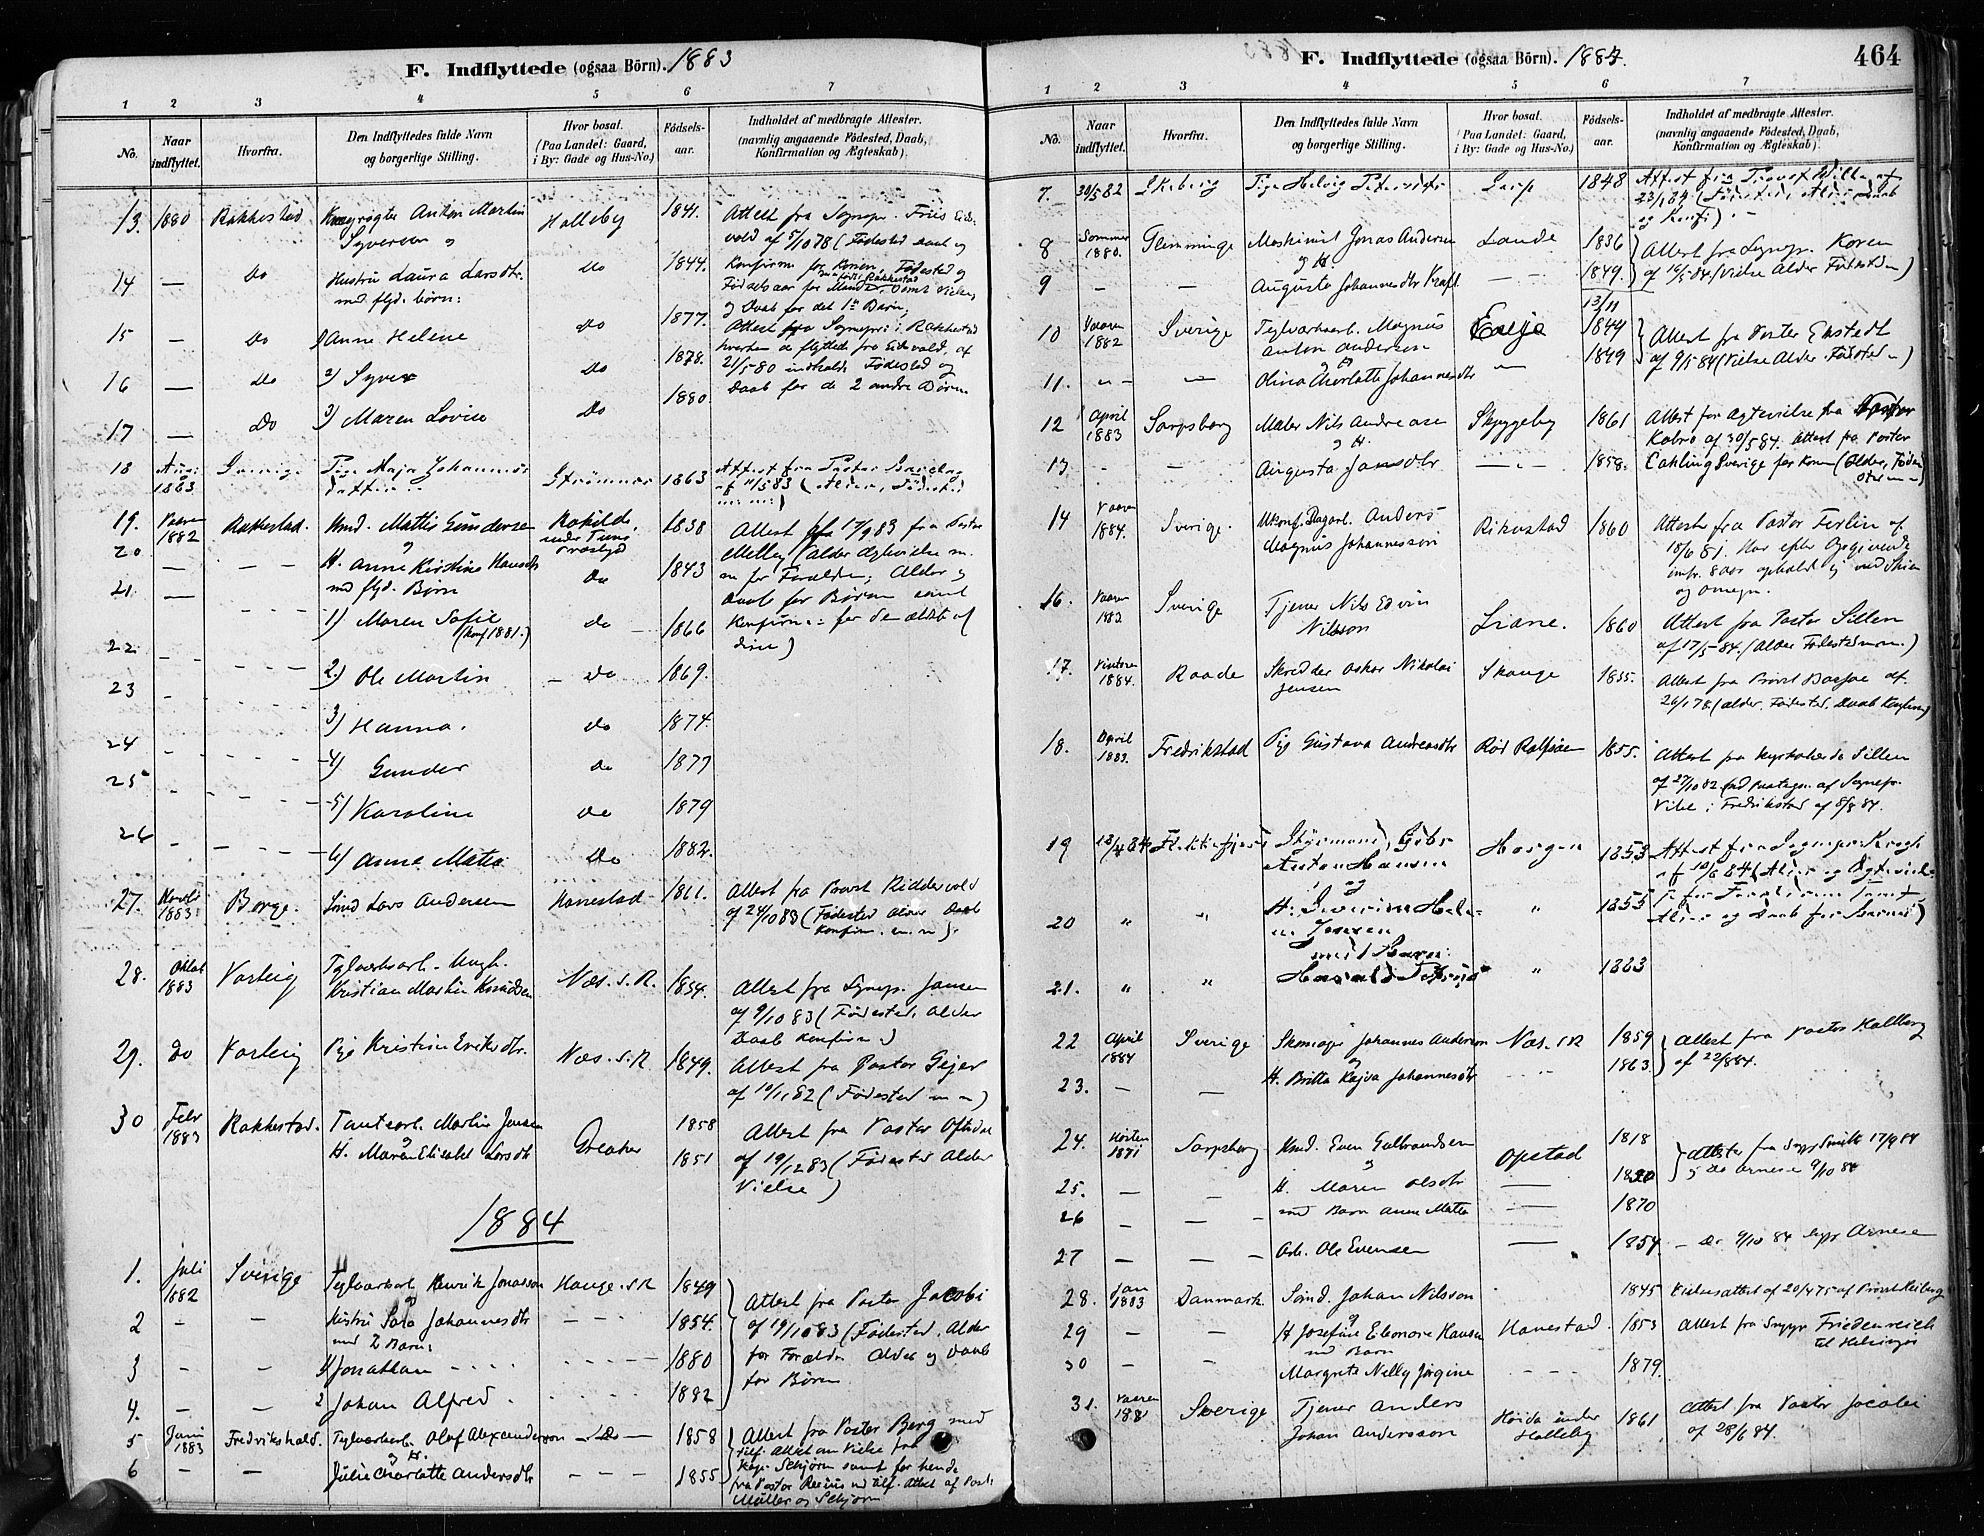 F. Indflyttede (ogsaa Börn). 1883
1 2 3 4 5 6 7
No.
Naar indflyttet.
Hvorfra.
Den Indflyttedes fulde Navn og borgerlige Stilling.
Hvor bosat. (Paa Landet: Gaard, i By: Gade og Hus-No.)
Födsels-aar.
Indholdet af medbragte Attester. (navnlig angaaende Födested, Daab, Konfirmation og Ægteskab).
13. 1880 Rakkestad Anton Martin Halleby 1841. Attest fra Sognepr. Friis
Syversen og vold af 5/10 78 (Fødested Daab og
14 — Do Hustru Laura Larsdtr. Do 1844. Konfirm for Konen, Fødested og
med flgd. børn: Fødselsaar for Manden, samt Vielse,
og Daab for det 1ste Barn;
15 — Do 1) Anne Helene Do 1877. Attest fra Sognepr. i Rakkestad
hvorhen de flyttede fra Eidsvold, af
16 — Do 2) Syver Do 1878. 21/5 80 indhold. Fødested og
Daab for de 2 andre Børn
17 — Do 3) Maren Lovise Do 1880.
18 Aug. 1883 Sverige Pige Maja Johannes- Strømnes 1863 Attest fra Pastor
datter af 11/5 83 (Alder, Fødested
19. Vaaren 1882 Rakkestad. Gmd. Mattis Gundersen Rokilde 1838 Attest af 17/9 83 fra Pastor
og under Tune
20 — — — H. Anne Kirstine Hansdtr Do 1843 Melbey (Alder Ægtevielse m.
med flgd. Børn m for Forældre; Alder og
21. — 1) Maren Sofie do 1866 Daab for Børnene samt
(konf 1881.) Konfirm: for den ældste af
disse)
22 2.) Ole Martin Do 1869.
23 3) Hanna. do 1874.
24 4) Gunder Do 1877
25 5) Karoline do 1879
26 6) Anna Matea Do 1882.
27. 1883: Berge. Smed Lars Andersen Hannestad 1861. Attest fra Provst Riddervold
af 24/10 83 (Fødested Alder Daab
Konfirm. m. m).
28. Oktob 1883 Varteig Teglværksarb. Ungk. Næs. S.R. 1854. Attest fra Sognepr. Jansen
Kristian Martin Knudsen af 9/10 83 (Fødested, Alder
Daab Konfirm)
29. Do Varteig Pige Kristine Eriksdtr. Næs. S.R 1849. Attest fra Pastor Gejer
af 19/11 82 (Fødested m m)
30 Febr 1883 Rakkestad. Tomtearb. Martin Jensen Greaker 1858 Attest fra Pastor Oftedal
og
H. Maren Elisabet Larsdtr 1851 af 19/12 83 (Fødested Alder
Vielse)
1884
1. Juli 1882 Sverige Teglværkarb. Henrik Jonasson Hauge. S.R 1849 Attest fra Pastor Jacobi
2 — — Hustru Sara Johannesdtr 1854. af 19/10 83 (Fødested, Alder
med 2 Børn: for Forældre Alder og Daab
3 — — 1) Jonathan 1880 for Børn
4. — — 2 Johan Alfred 1882
5 Juni 1883 Fredrikshald. Teglværkarb. Olaf Alexanderson Do — 1858 Attest fra Pastor Berg med
og H. Attest om Vielse fra
6 — — Julie Charlotte Andersdtr 1855 Kap. Schjørn samt for hende
fra Pastor med tilf. Attest af Past.
Müller og Schjørn
F. Indflyttede (ogsaa Börn). 1884. 464
1 2 3 4 5 6 7
No.
Naar indflyttet.
Hvorfra.
Den Indflyttedes fulde Navn og borgerlige Stilling.
Hvor bosat. (Paa Landet: Gaard, i By: Gade og Hus-No.)
Födsels-aar.
Indholdet af medbragte Attester. (navnlig angaaende Födested, Daab, Konfirmation og Ægteskab).
7. 30/5 82 Skeberg Pige Helvig Petersdtr 1848 Attest fra Provst Wille af
23/1 84 (Fødested, Alder, Daab
og Konf.) —
8 Sommer 1880. Flemminge Maskinist Jonas Andersen Lande 1836 Attest fra Sognepr. Koren
og H.
9 — — Augusta Johannesdtr Kraft — 1849. af 16/5 84 (Vielse Alder Fødested m)
10 Vaaren 1882 Sverige Teglværksarb. Magnus Evje 13/11 1844 Attest fra Pastor Ekstedt
Anton Anderson 1849 af 9/5 84 (Vielse Alder Fødested m)
og
11. — — Olina Charlotte Johannesdtr —
12 April 1883 Sarpsborg Maler Nils Andreasen Skyggeby 1861 Attest for Ægtevielse fra Pastor
og H. Kobro af 30/5 84. Attest fra Pastor
13. — — Augusta Jansdtr — 1858. Cahling Sverige for Konen (Alder, Føde-
sted m m)
14 Vaaren 1884. Sverige. Ukonf. Dagarb. Anders Rikustad 1860 Attest fra Pastor Ferlin af
Magnus Johannesson 18/6 81. Har efter Opgivende
8 aar opholdt sig ved Skien
og omegn.
16. Vaaren 1882 Sverige Tjener Nils Edvin Liane. 1860 Attest fra Pastor Sillen
Nilsson af 17/5 84. (Alder Fødested m m.)
17. Vinteren 1884. Raade Skrædder Oskar Nikolai Skauge 1855. Attest fra Provst af
Jensen 26/1 78 (Alder, Fødested, Daab Konfirm)
18. April 1883. Fredrikstad Pige Gustava Andreasdtr Rød Rolfsøen 1855. Attest fra Kyrkoherde Sillen
af 27/10 82 med Paategn. af Sognepr.
Vibe i Fredrikstad af 8/8 84.
19 13/4 84 Flekkefjord Styrmand Gabr. Hasgen 1853 Attest fra Sognepr. Krogh
Anton Hansen af 10/6 84 (Alder og Ægtevielse
og
20 " " H. Severine Hele- " 1855 for Forældrene samt
ne Jensen Alder og Daab for Barnet)
med Barn:
21. " " Harald " 1883
22 April 1884 Sverige Skomager Johannes Anderson Næs. S R 1859 Attest fra Pastor Hallberg
og
23. — — H. Britta Kajsa Johannesdtr 1863 af 22/8 84.
24. Høsten 1871 Sarpsborg Gmd. Even Gulbrandsen Opstad 1818 Attester fra Sogpr Smith 17/9 84
og
25. — — H. Maren Olsdtr — 1820 og do Arnesen 9/10 84
26 — — med Barn Anne Matea — 1870
27 — — Arb. Ole Evensen — 1854. — Do 9/10 84 Sogpr Arnesen
28. Jan 1883 Danmark. Smed. Johan Nilsson 1845 Vielsesattest af 20/4 75 af Provst Heiberg
og
29 — — H. Josefine Eleonore Hansen Hanestad. 1853 Attest fra Sognpr Friedenreich
med Barn til Helsingør
30 — — Margrete Nelly Jørgine 1879.
31. Vaaren 1881 Sverige Tjener Anders Høida under 1861 Attest fra Pastor Jacobi
Johan Andersson Halleby af 28/6 84.